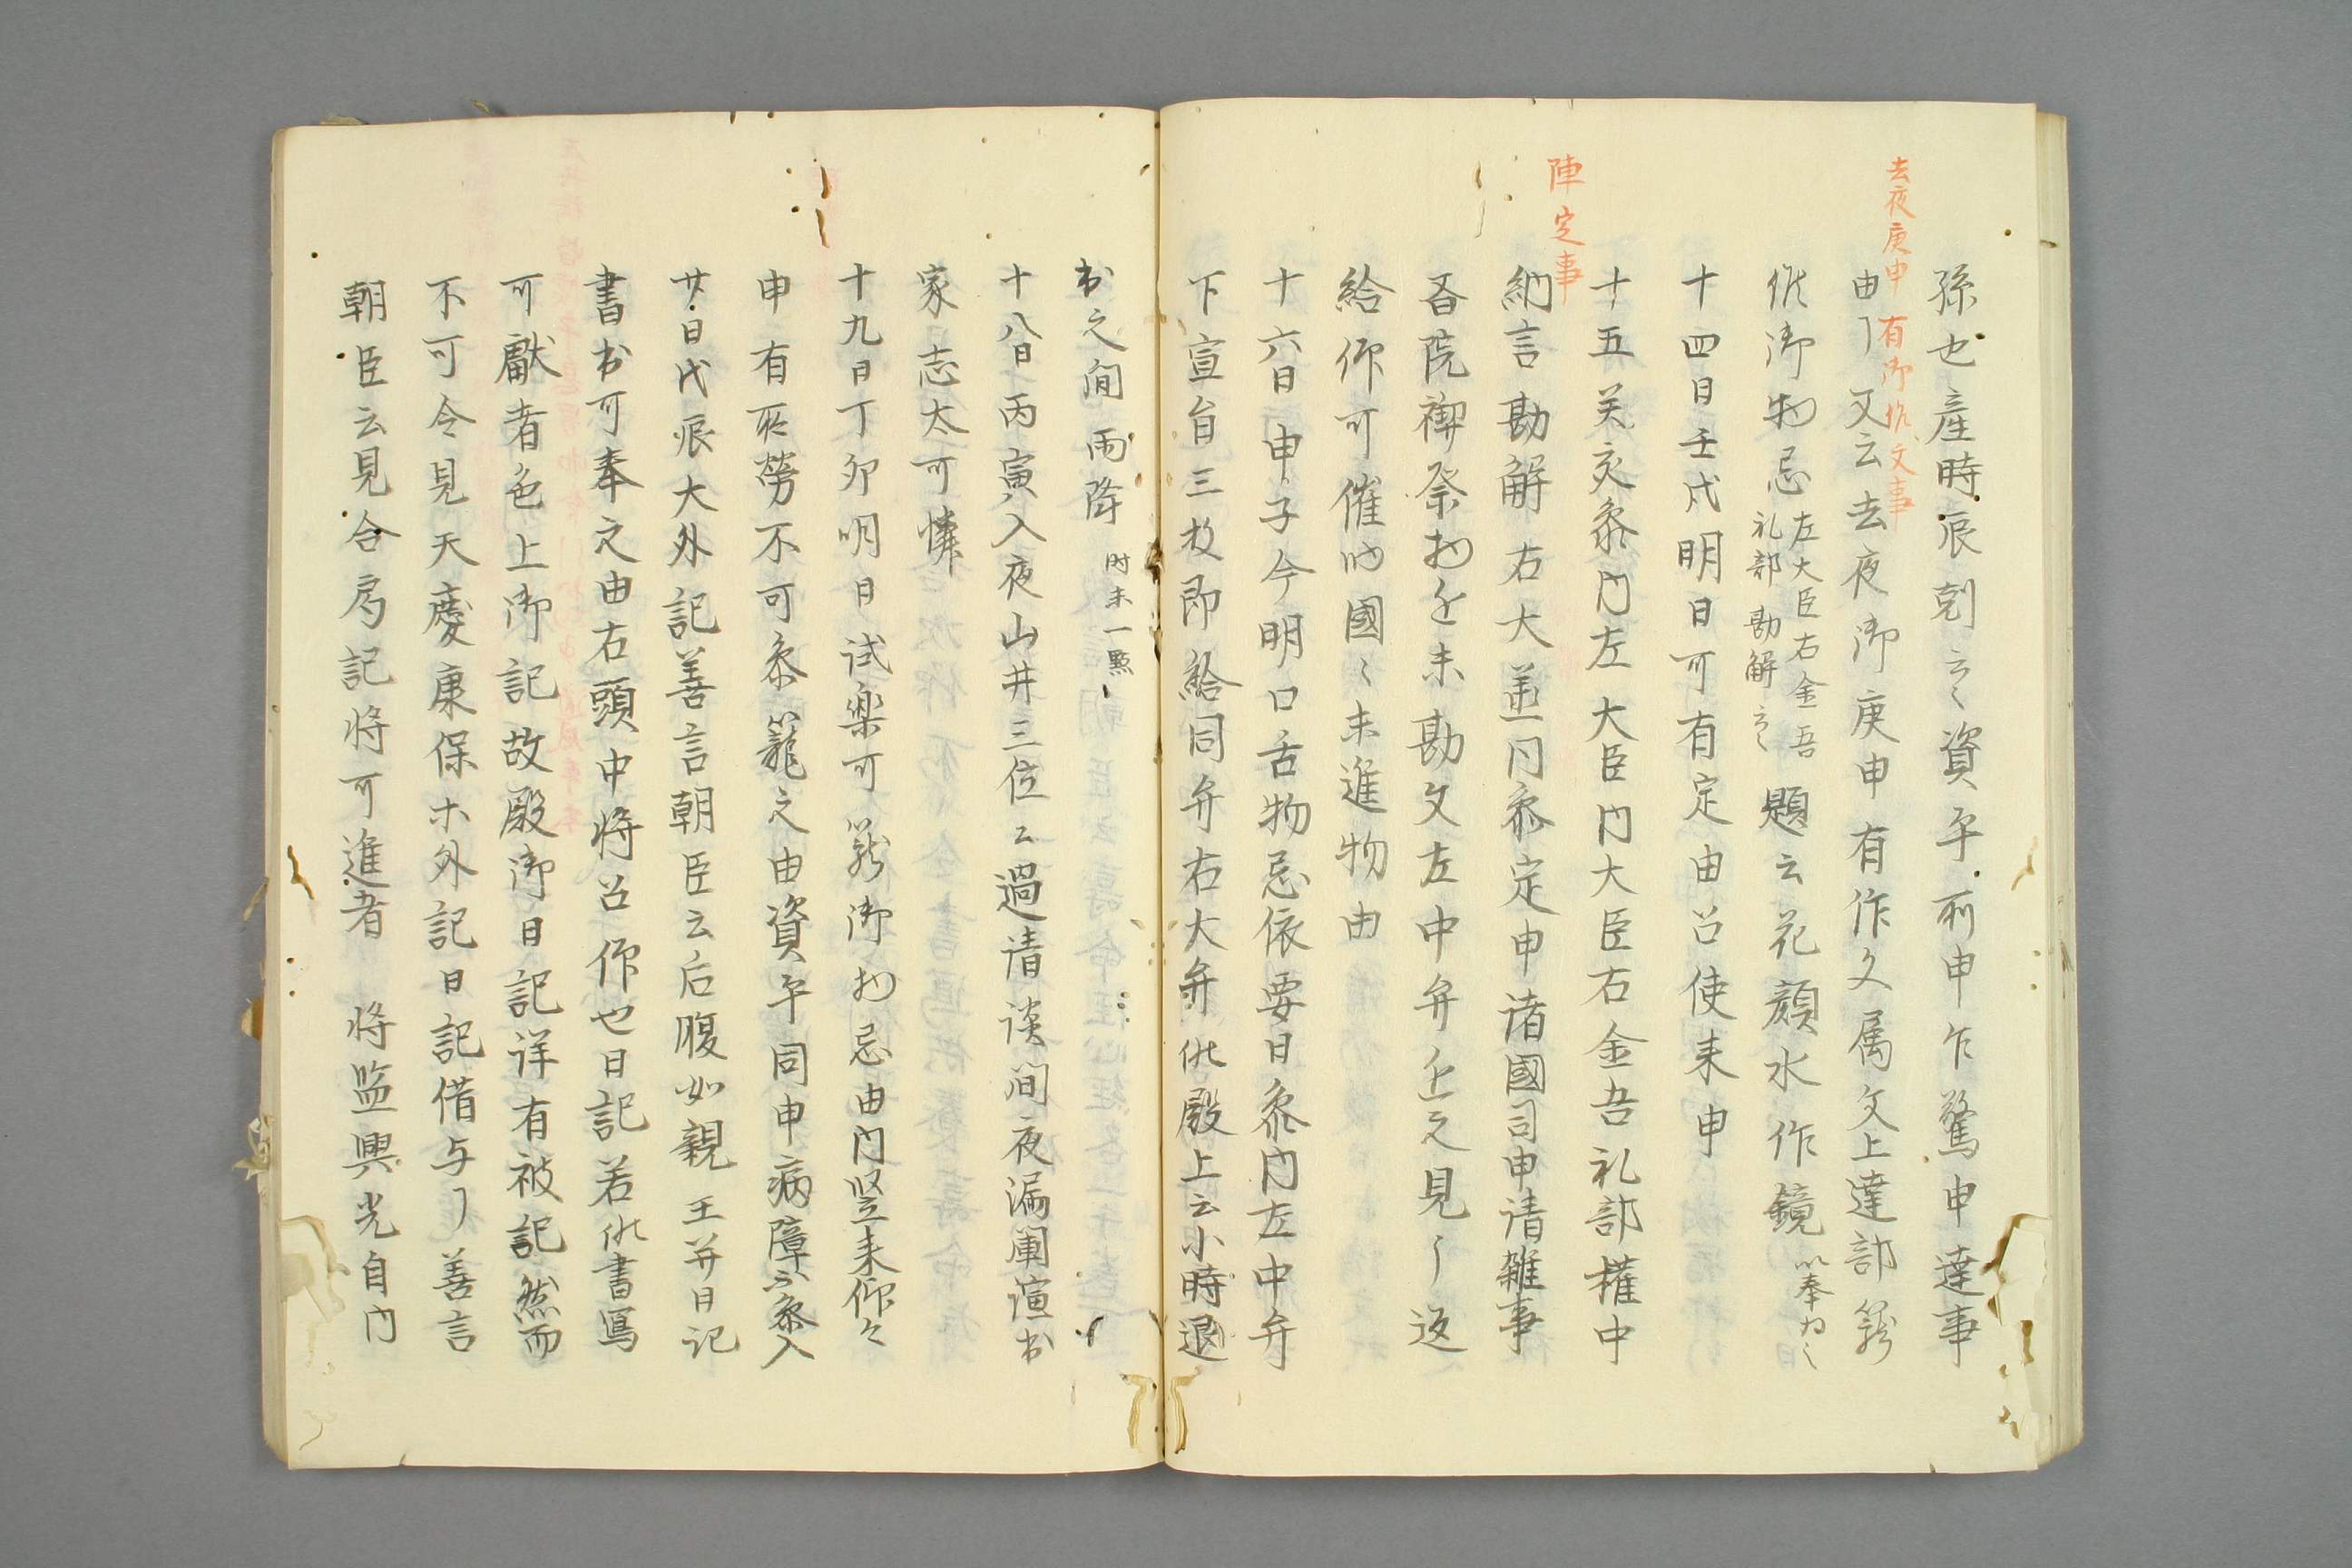 去夜庚申有御作文事
孫也産時辰剋云〻資平所申乍驚申達事
由了又云去夜御庚申有作文属文上達部籠
依御物忌左大臣右金吾礼部勘解云〻題云花顔水作鏡以奉為〻
十四日壬戌明日可有定由召使来申
陣定事
十五癸亥参内左大臣内大臣右金吾礼部権中
納言勘解右大並同参定申諸國司申請雑事
斎院禊祭物色未勘文左中弁色之見〻返
給仰可催時國〻未進物由
十六日甲子今明口舌物忌依要日参内左中弁
下宣旨三枚即給同弁右大弁依殿上云小時退
出之間雨降時未一點
十八日丙寅入夜山井三位公過清談間夜漏闌演出
家志太可憐
十九日丁卯明日試樂可籠御物忌由内竪来仰々
申有所勞不可参籠之由資平同申病障不参入
廿日戊辰大外記善言朝臣云后腹如親王并日記
書出可奉之由右頭中将召仰也日記若依書寫
可獻者色上御記故殿御日記詳有被記然而
不可令見天慶康保木外記日記借与了善言
朝臣云見合局記将可進者 将監興光自内